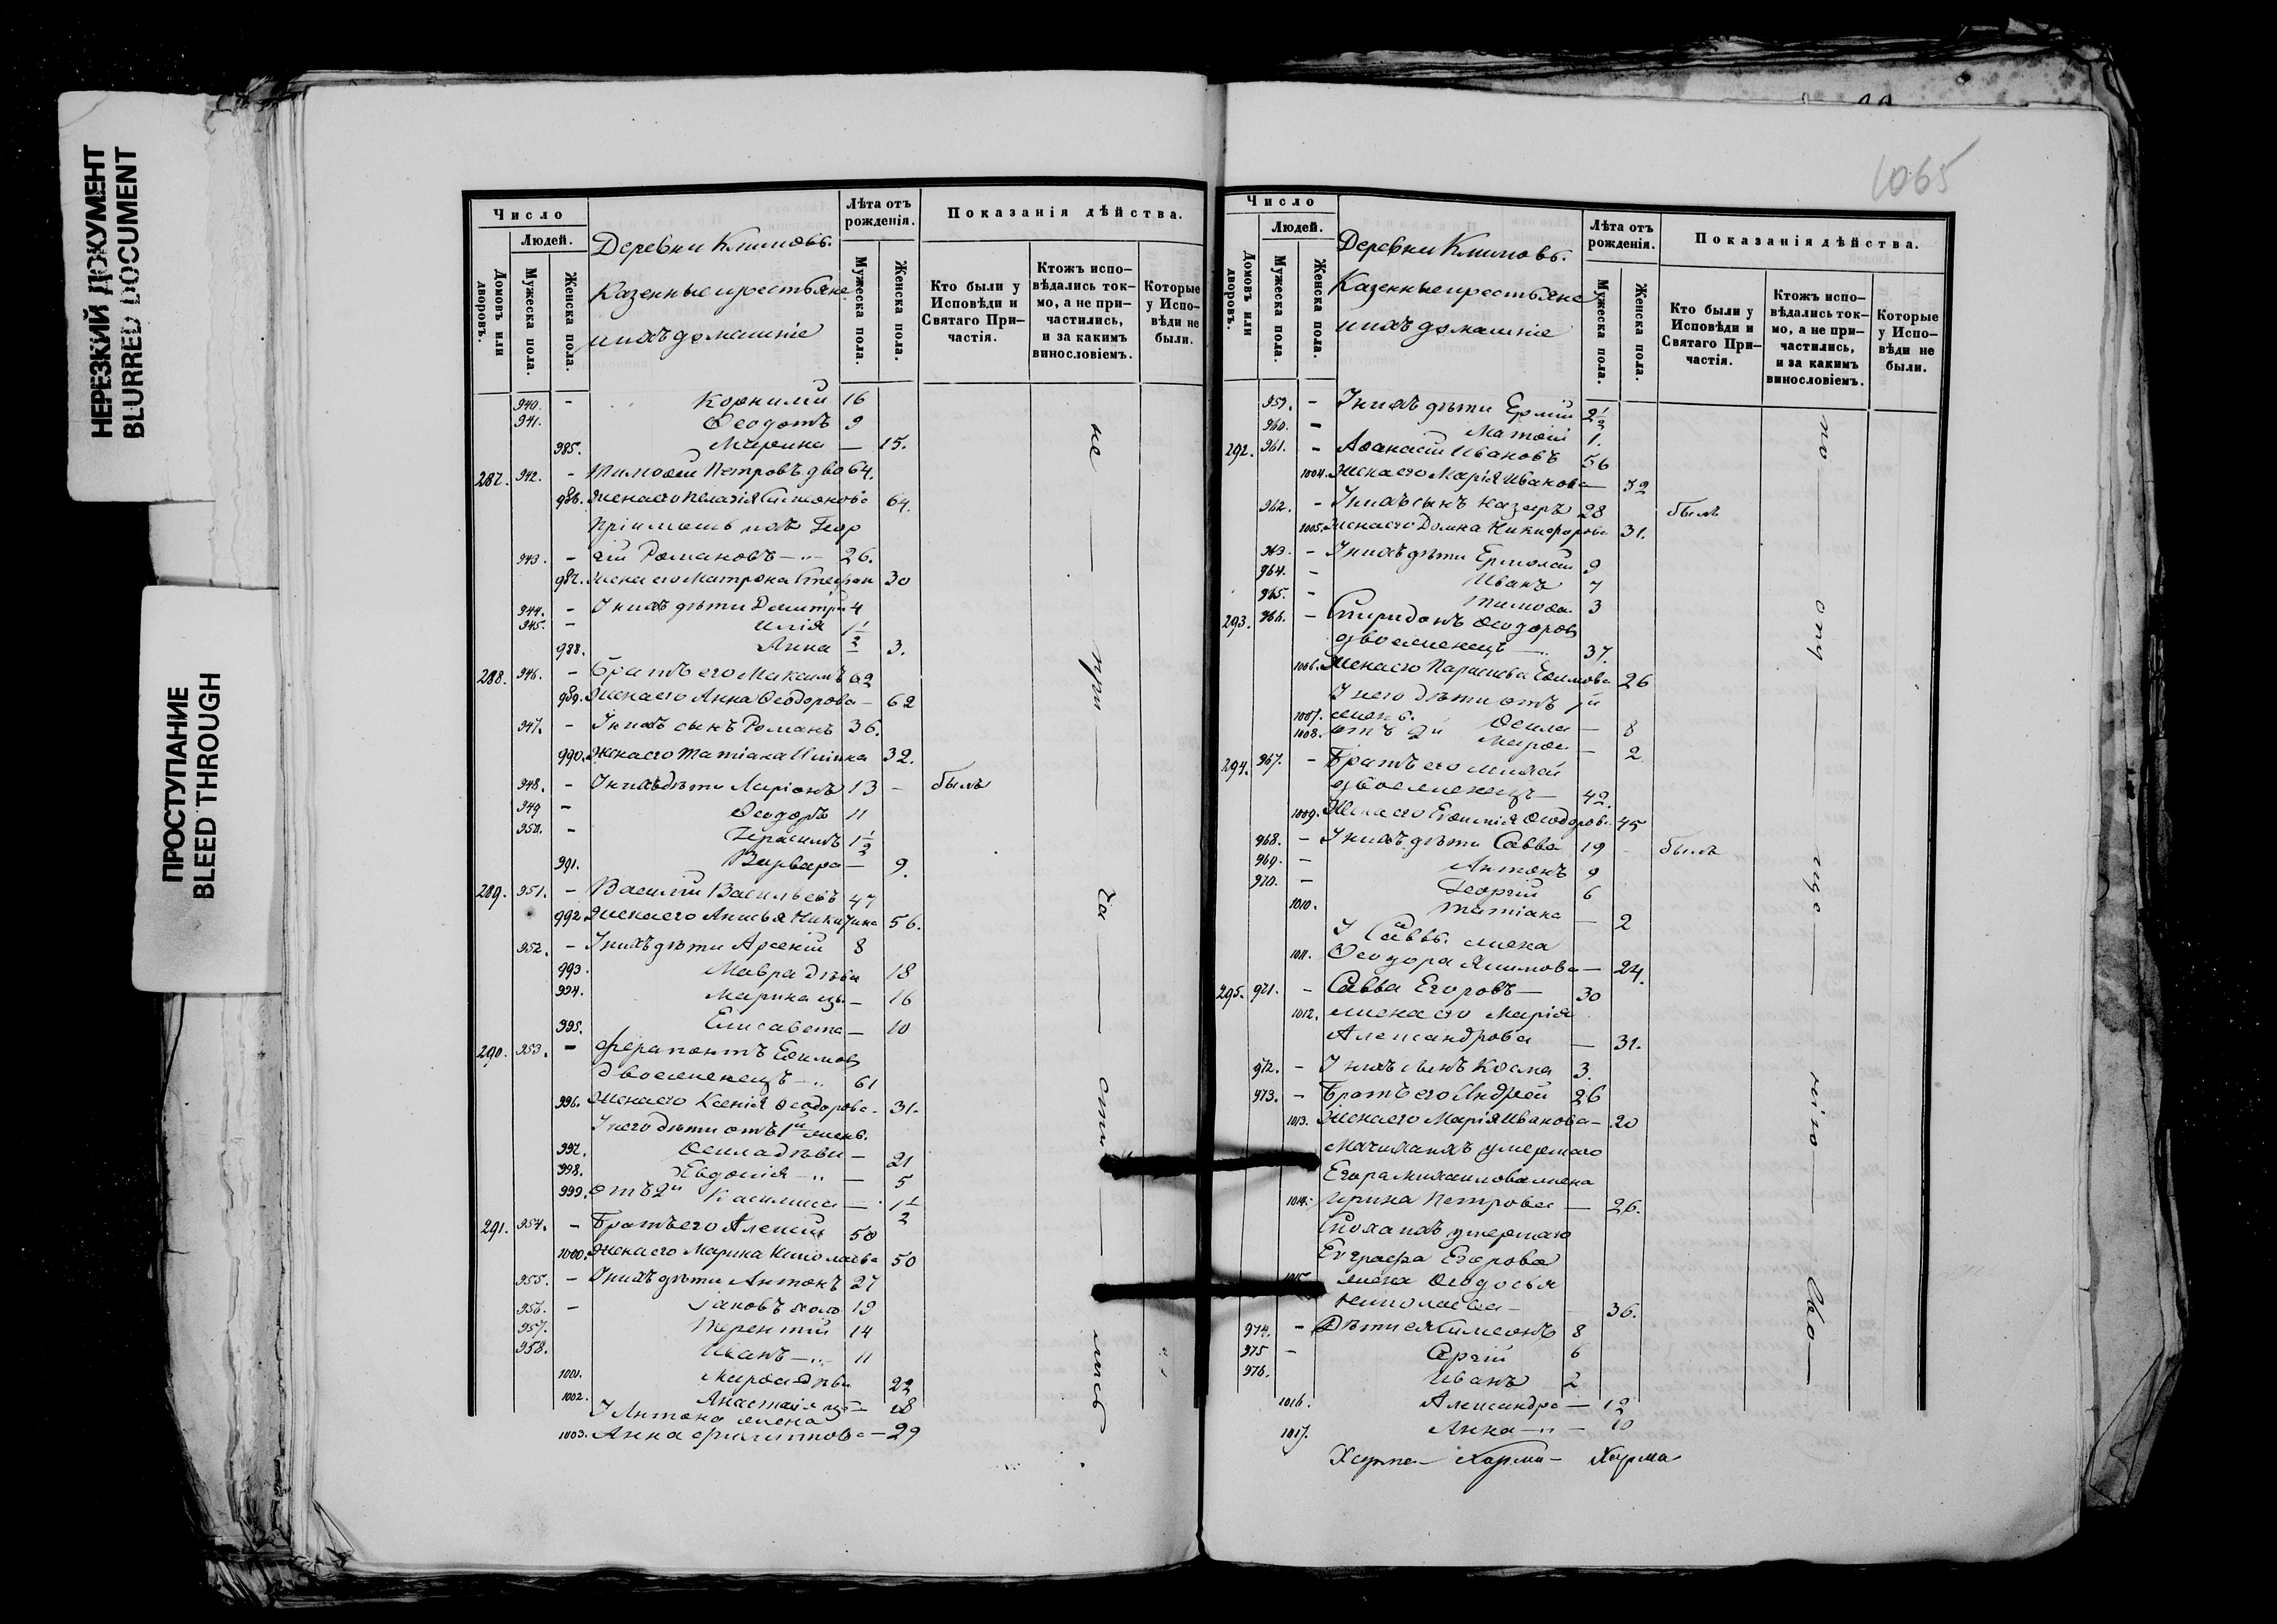 НЕРЕЗКИЙ ДОКУМЕНТ
BLURRED DOCUMENT
ПРОСТУПАНИЕ
BLEED THROUGH
Число
Людей.
Домовъ или дворовъ.
Мужеска пола.
Женска пола.
Деревни Климовъ.
Казенные крестьяне
и ихъ домашніе
Лѣта отъ рожденія.
Мужеска пола.
Женска пола.
Показанія дѣйства.
Кто были у Исповѣди и Святаго При-частія.
Ктожъ испо-вѣдались ток-мо, а не при-частились, и за какимъ винословіемъ.
Которые у Испо-вѣди не были.
940. - Корнилій 16
941. Ѳеодотъ 9
985. Марина — 15.
287. 942. - Тимоѳей Петровъ дво 64.
986. Жена его Пелагія Симеонова 64.
Пріимышь ихъ Геор
943. - гій Романовъ 26.
987. Жена его Матрона Стефан 30
944. - У нихъ дѣти Димитрі 4
945. - Илія 1 1/2
988. Анна — 3.
288. 946. - Братъ его Максимъ 62
989. Жена его Анна Ѳеодорова - 62
947. - У нихъ сынъ Романъ 36.
990. Жена его Татіана Ильина 32.
948. - У нихъ дѣти Ларіонъ 13 - былъ
949 - Ѳеодоръ 11
950. - Герасимъ 1 1/2
991. Варвара — 9.
289. 951. - Василій Васильевъ 47
992. Жена его Анисья Никитина 56.
952. - У нихъ дѣти Арсеній 8
993. Мавра дѣви 18
994. Марина — 16
995. Елисавета — 10
290. 953. - Ферапонтъ Евѳимов
двоеженецъ 61
996. Жена его Ксенія Ѳеодорова - 31.
У него дѣти отъ 1й жены.
997. дѣви — 21
998. Евдокія — 5
999. отъ 2й Василиса — 1 1/2
291. 954. - Братъ его Алексѣй 50
1000. Жена его Марина Николаева 50
955. - У нихъ дѣти Антонъ 27
956. - Іаковъ холо 19
957. Терентій 14
958. Иванъ 11
1001. Марѳа дѣви 22
1002. Анастасія — 18
У Антона жена
1003. Анна Филиппова — 29
не — при — ча — сти — лись
1065
Число
Людей.
Домовъ или дворовъ.
Мужеска пола.
Женска пола.
Деревни Климовъ.
Казенные крестьяне
и ихъ домашніе
Лѣта отъ рожденія.
Мужеска пола.
Женска пола.
Показанія дѣйства.
Кто были у Исповѣди и Святаго При-частія.
Ктожъ испо-вѣдались ток-мо, а не при-частились, и за какимъ винословіемъ.
Которые у Испо-вѣди не были.
959. - У нихъ дѣти Ермій 2 1/2
960. - Матѳій 1.
292. 961. - Аѳанасій Ивановъ 56
1004. Жена его Марія Иванова — 52
962. - У нихъ сынъ Назаръ 28 былъ
1005. Жена его Домна Никифорова 31.
963. - У нихъ дѣти Ермолай 9
964. - Иванъ 7
965. - Тимоѳей 3
293. 966. - Спиридонъ Ѳеодоров
двоеженецъ 37.
1006. Жена его Параскева Евѳимова 26
У него дѣти отъ 1й
1007. жены. — 8
1008. отъ 2й Марѳа — 2
294. 967. - Братъ его
двоеженецъ — 42.
1009. Жена его Евѳимія Ѳеодорова 45
968. - У нихъ дѣти Савва 19 - былъ
969. - Антонъ 9
970. - Георгій 6
1010. Татіана — 2
У Саввы жена
1011. Ѳеодора Якимова — 24.
295. 971. - Савва Егоровъ — 30
1012. жена его Марія
Александрова — 31.
972. - У нихъ сынъ Косма 3.
973. - Братъ его Андрей 26
1013. Жена его Марія Иванова — 20
Мачиха ихъ умершаго
Егора Михаилова жена
1014. Ирина Петрова — 26.
Сноха ихъ умершаго
Евграфа Егорова
1015. жена Ѳеодосья
Николаева — 36.
974. - Дѣти ея Симеонъ 8
975 - Сергій 6
976. Иванъ 2
1016. Александра — 12
1017. Анна — 10
по — опу — ще — нію — сво —